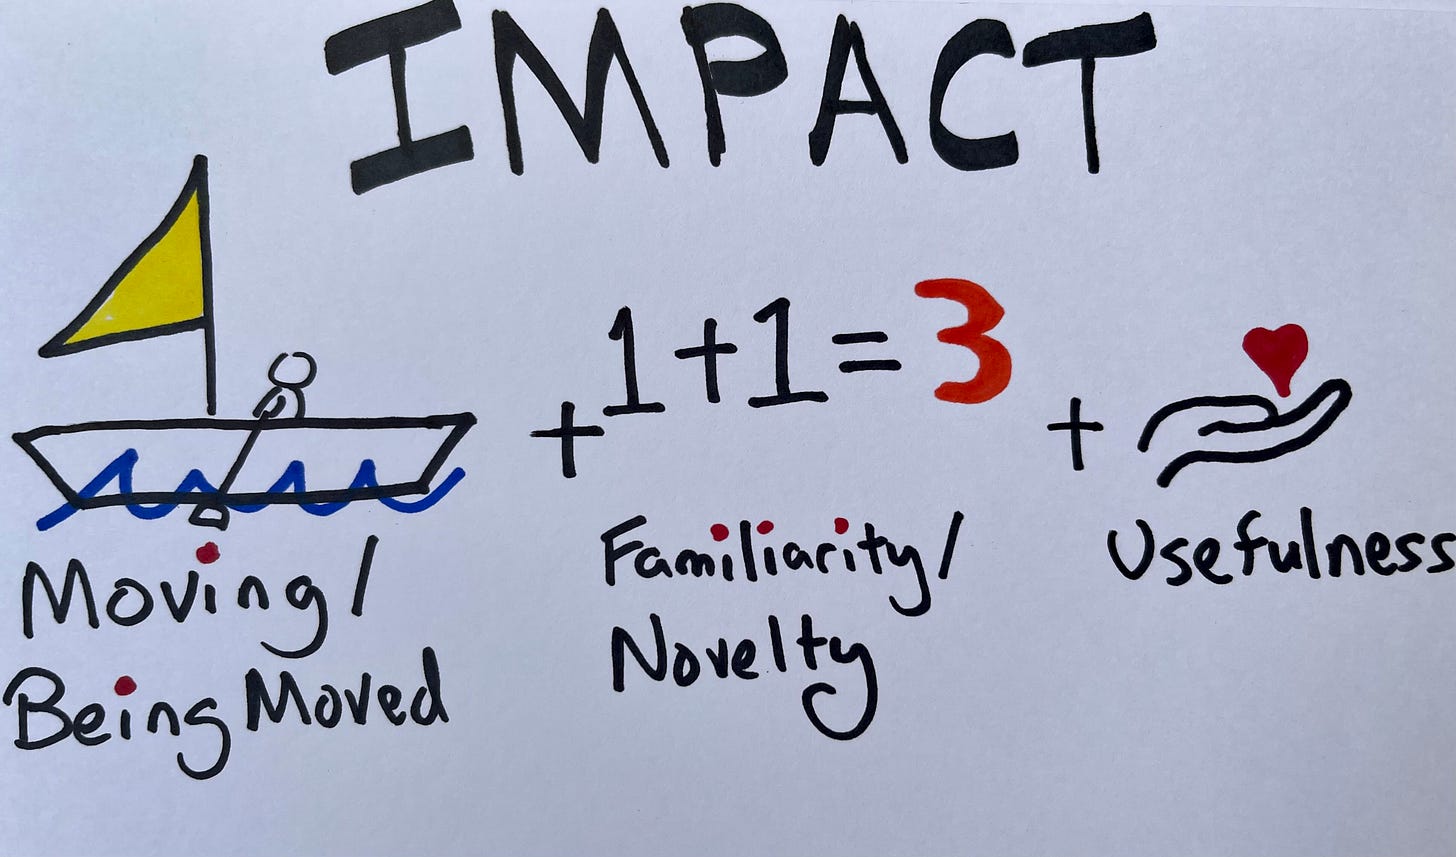 IMPACT
+ 1+1=3 +
Moving/
Being Moved
Familiarity/
Novelty
Usefulness